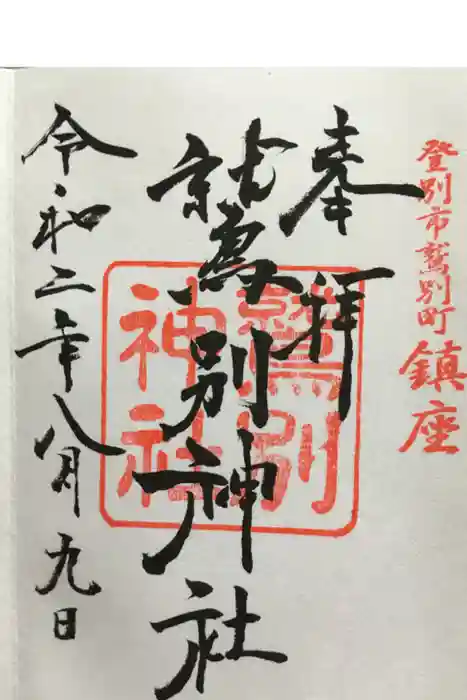 登別市鷲別町鎮座
奉拝
鷲別神社
鷲別神社
令和二年八月九日